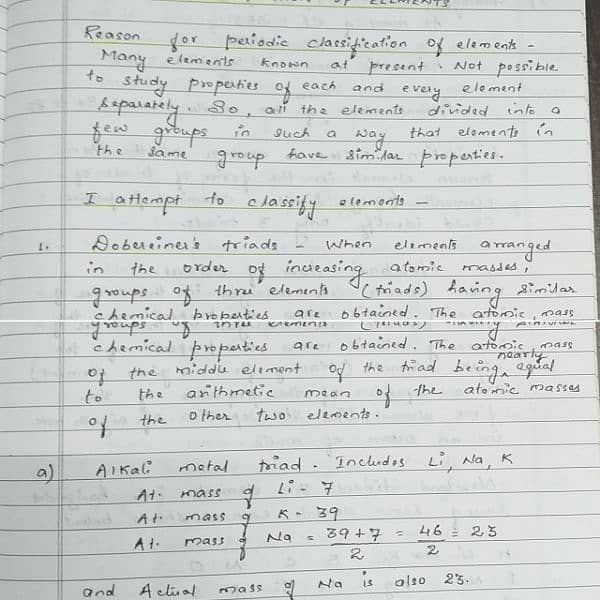 OF ELEMENTS
Reason for periodic classification of elements -
Many elements known at present. Not possible
to study properties of each and every element
separately. So, all the elements divided into a
few groups in such a way that elements in
the same group have similar properties.
I attempt to classify elements -
1. Dobereiner's triads - When elements arranged
in the order of increasing atomic masses,
groups of three elements (triads) having similar
chemical properties are obtained. The atomic, mass
groups of three elements (triads) having similar
chemical properties are obtained. The atomic, mass
of the middle element of the triad being nearly equal
to the arithmetic mean of the atomic masses
of the other two elements.
a) Alkali metal triad. Includes Li, Na, K
At. mass of Li - 7
At. mass of K - 39
At. mass of Na = 39+7/2 = 46/2 = 23
and Actual mass of Na is also 23.